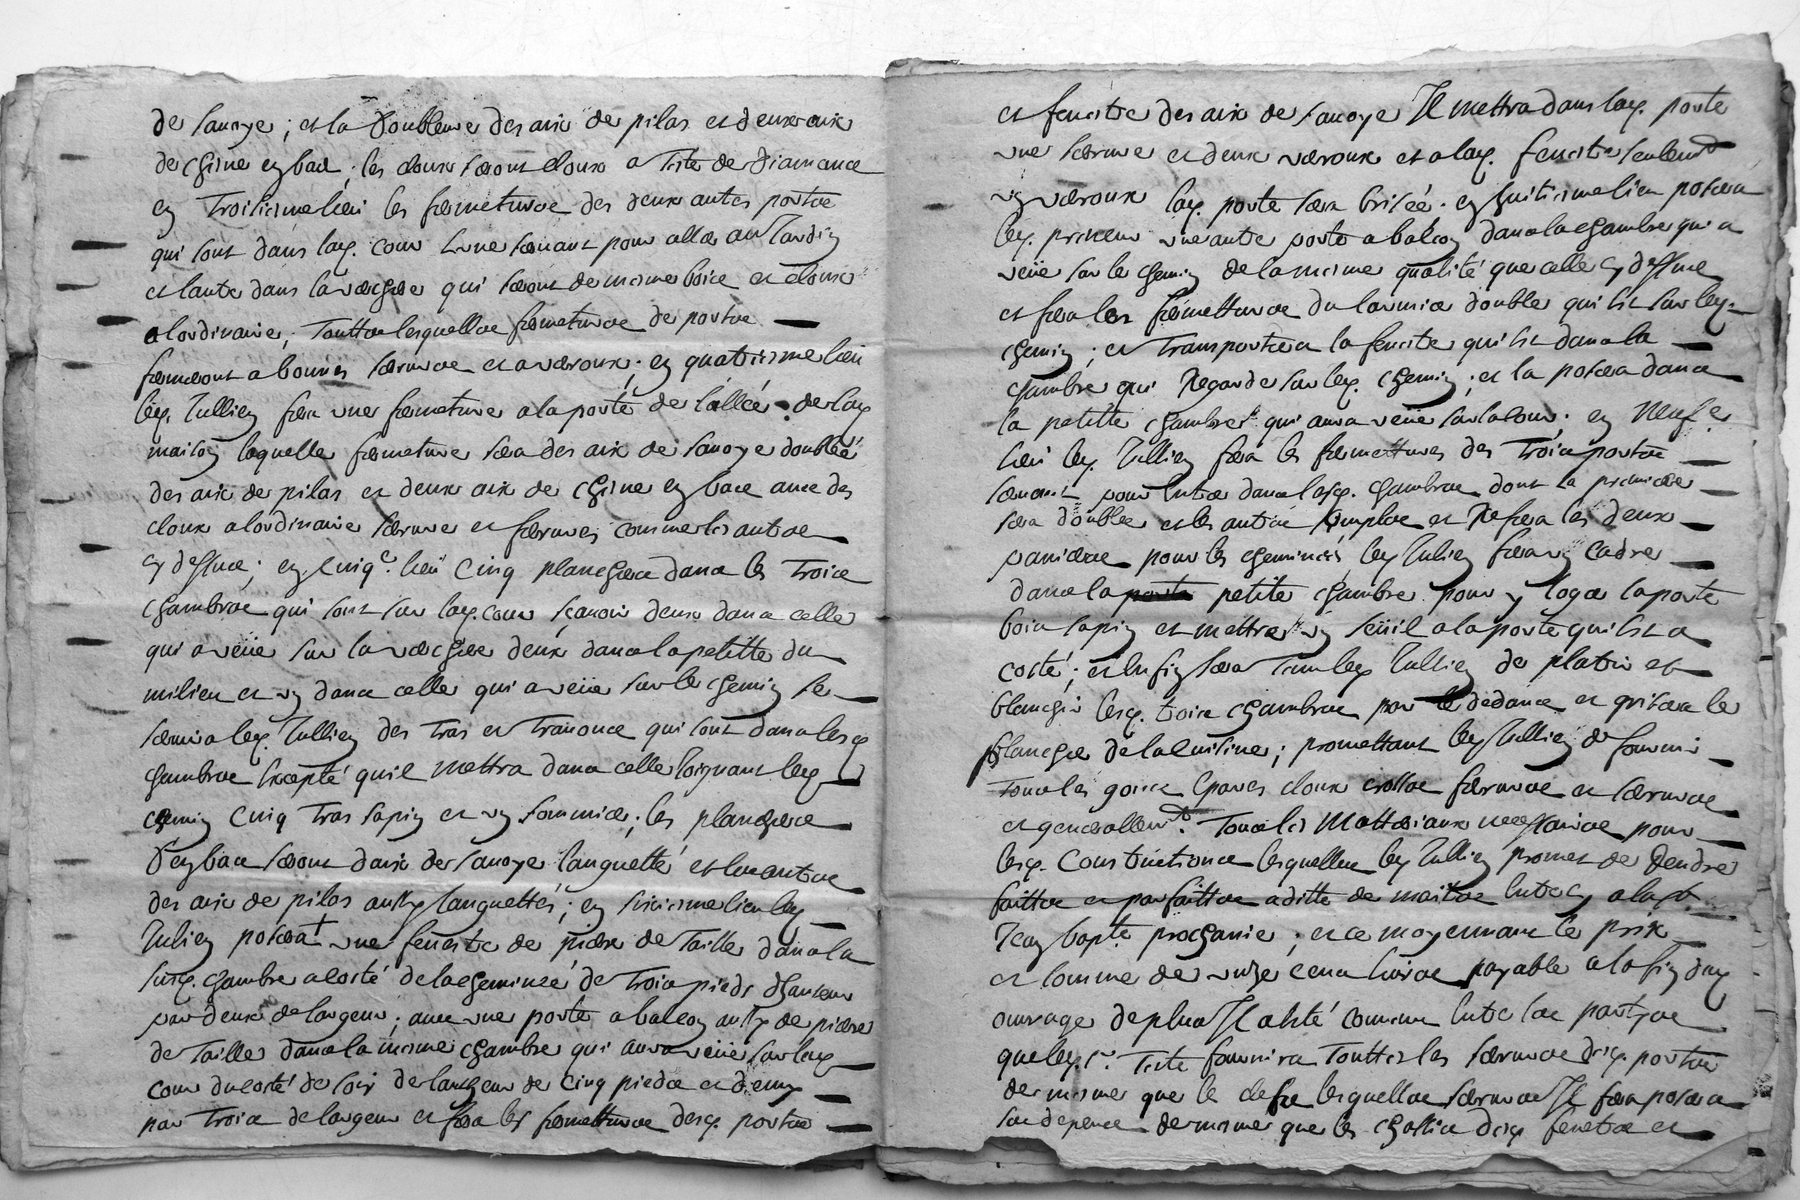 de sauoye ; et la doubleure des aix de pilas et deux aix
de chene en bas ; les cloux seront cloux a teste de diamance
en troisiesme lieu les fermetures des deux autes portes
qui sont dans lad. cour lune seruant pour aller au jardin
et laute dans la verchere qui seront de mesme bois et cloux
a lordinaire ; touttes lesquelles fermetures de portes
fermeront a bonnes serrures et a veroux ; en quatriesme lieu
led. Jullien fera une fermeture a la porte de lallée de lad.
maison laquelle fermeture sera des aix de sauoye doublée
des aix de pilas et deux aix de chene en bas auec des
cloux a lordinaire serrure et ferrures comme les autes
cy dessus ; en cinq.e lieu cinq planchers dans les trois
chambres qui sont sur lad. cour sçauoir deux dans celle
qui a veüe sur la verchere deux dans la petitte du
milieu et un dans celle qui a veüe sur le chemin se
seruira led. Jullien des tras et trauons qui sont dans lesd.
chambres excepté quil mettra dans celle joignant led.
chemin cinq tras sapin et un sommier ; les planchers
denbas seront daix de sauoye languetté et les autres
des aix de pilas aussy languettés ; en sixiesme lieu led.
Jullien posera une fenestre de pierre de taille dans la
susd. chambre a costé de la cheminée de trois pieds dhauteur
par deux de largeur ; auec une porte a balcon aussy de pierre
de taille dans la mesme chambre qui aura veüe sur lad.
cour du costé de soir de lauteur de cinq pieds et demy
par trois de largeur et fera les fermettures desd. portes
et fenestre des aix de sauoye Il mettra dans lad. porte
une serrure et deux veroux et a lad. fenestre seulem.t
un veroux lad. porte sera brisée . en huitiesme lieu posera
led. preneur une aute porte a balcon dans la chambre qui a
veüe sur le chemin de la mesme qualité que celle cy dessus
et fera les fermetture du larmier double qui est sur led.
chemin ; et transportera la fenestre qui est dans la
chambre qui regarde sur led. chemin ; et la posera dans
la petitte chambre qui aura veüe sur la cour ; en neuf.e
lieu led. Jullien fera les fermettures des trois portes
seruant pour entrer dans lesd. chambres dont la premiere
sera doublée et les autres simples et refera les deux
paniere pour les cheminées led. Julien fera un cadre
dans la petite chambre pour y loger la porte
bois sapin et mettre un seüil a la porte qui est a
costé ; et enfin sera tenu led. Jullien de platrir et
blanchir lesd. trois chambres par le dedans et grisera le
plancher de la cuisine ; promettant led. Jullien de fournir
tous les gonds espares cloux crosses ferrures et serrures
et generallem.t tous les matteriaux necessaires pour
lesd. constructions lesquelles led. Jullien promet de rendre
faittes et parfaittes a ditte de maitres entre cy a la st
Jean bapt.e prochaine ; et ce moyennant le prix
et somme de unze cens liures payable a la fin dud.
ouurage de plus Il a esté conuenu entre les partyes
que led. s.r Teste fournira touttes les serrures desd. portes
de mesme que les clefs lesquelles serrures Il fera poser a
sa depence de mesme que les chassis desd. fenetres et